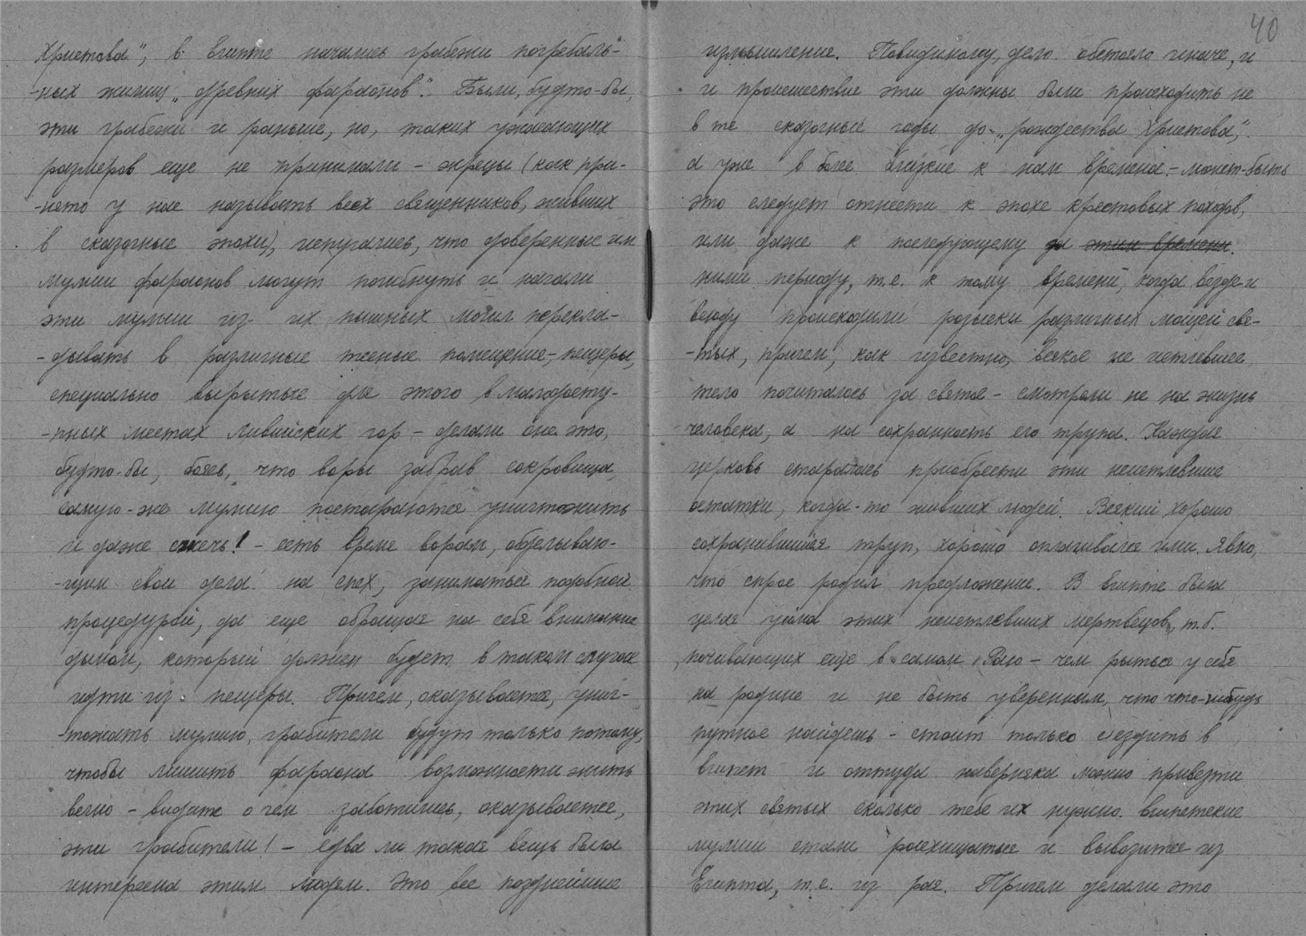 Христова", в Египте начались грабежи погребаль-
-ных жилищ "древних фараонов". Были, будто-бы,
эти грабежи и раньше, но, таких ужасающих
размеров еще не принимали - жрецы (как при-
-нято у нас называть всех священников, живших
в сказочные эпохи), испугались, что доверенные им
мумии фараонов могут погибнуть и начали
эти мумии из их пышных могил перекла-
-дывать в различные тесные помещение - пещеры,
специально вырытые для этого в малодосту-
-пных местах Ливийских гор - делали они это,
будто-бы, боясь, что воры забрав сокровища,
самую-же мумию постараются уничтожить
и даже сжечь! - есть время ворам, обделываю-
-щим свои дела на спех, заниматься подобной
процедурой, да еще обращая на себя внимание
дымом, который должен будет в таком случае
идти из пещеры. Причем, оказывается, унич-
-тожать мумию, грабители будут только потому,
чтобы лишить фараона возможности жить
вечно - видите о чем заботились, оказывается,
эти грабители! - Едва ли такая вещь была
интересна этим людям. Это все позднейшие
40
измышление. Повидимому, дело обстояло иначе, и
и происшествие эти должны были происходить не
в те сказочные годы до "рождества Христова",
а уже в более близкие к нам времена, - может-быть
это следует отнести к эпохе крестовых походов,
или даже к последующему за этим времени.
ними периоду, т.е. к тому времени, когда везде и
всюду происходили розыски различных мощей свя-
-тых, причем, как известно, всякое не истлевшее
тело почиталось за святое - смотрели не на жизнь
человека, а на сохранность его трупа. Каждая
церковь старалась приобрести эти неистлевшие
остатки, когда-то живших людей. Всякий хорошо
сохранившийся труп, хорошо оплачивался ими. Явно,
что спрос родил предложение. В Египте была
целая уйма этих неистлевших мертвецов, т.б.
почивающих еще в самом Раю - чем рыться у себя
на родине и не быть уверенным, что что-нибудь
путное найдешь - стоит только съездить в
Египет и оттуда наверняка можно привезти
этих святых сколько тебе их нужно. Египетские
мумии стали расхищаться и вывозится из
Египта, т.е. из рая. Причем делали это